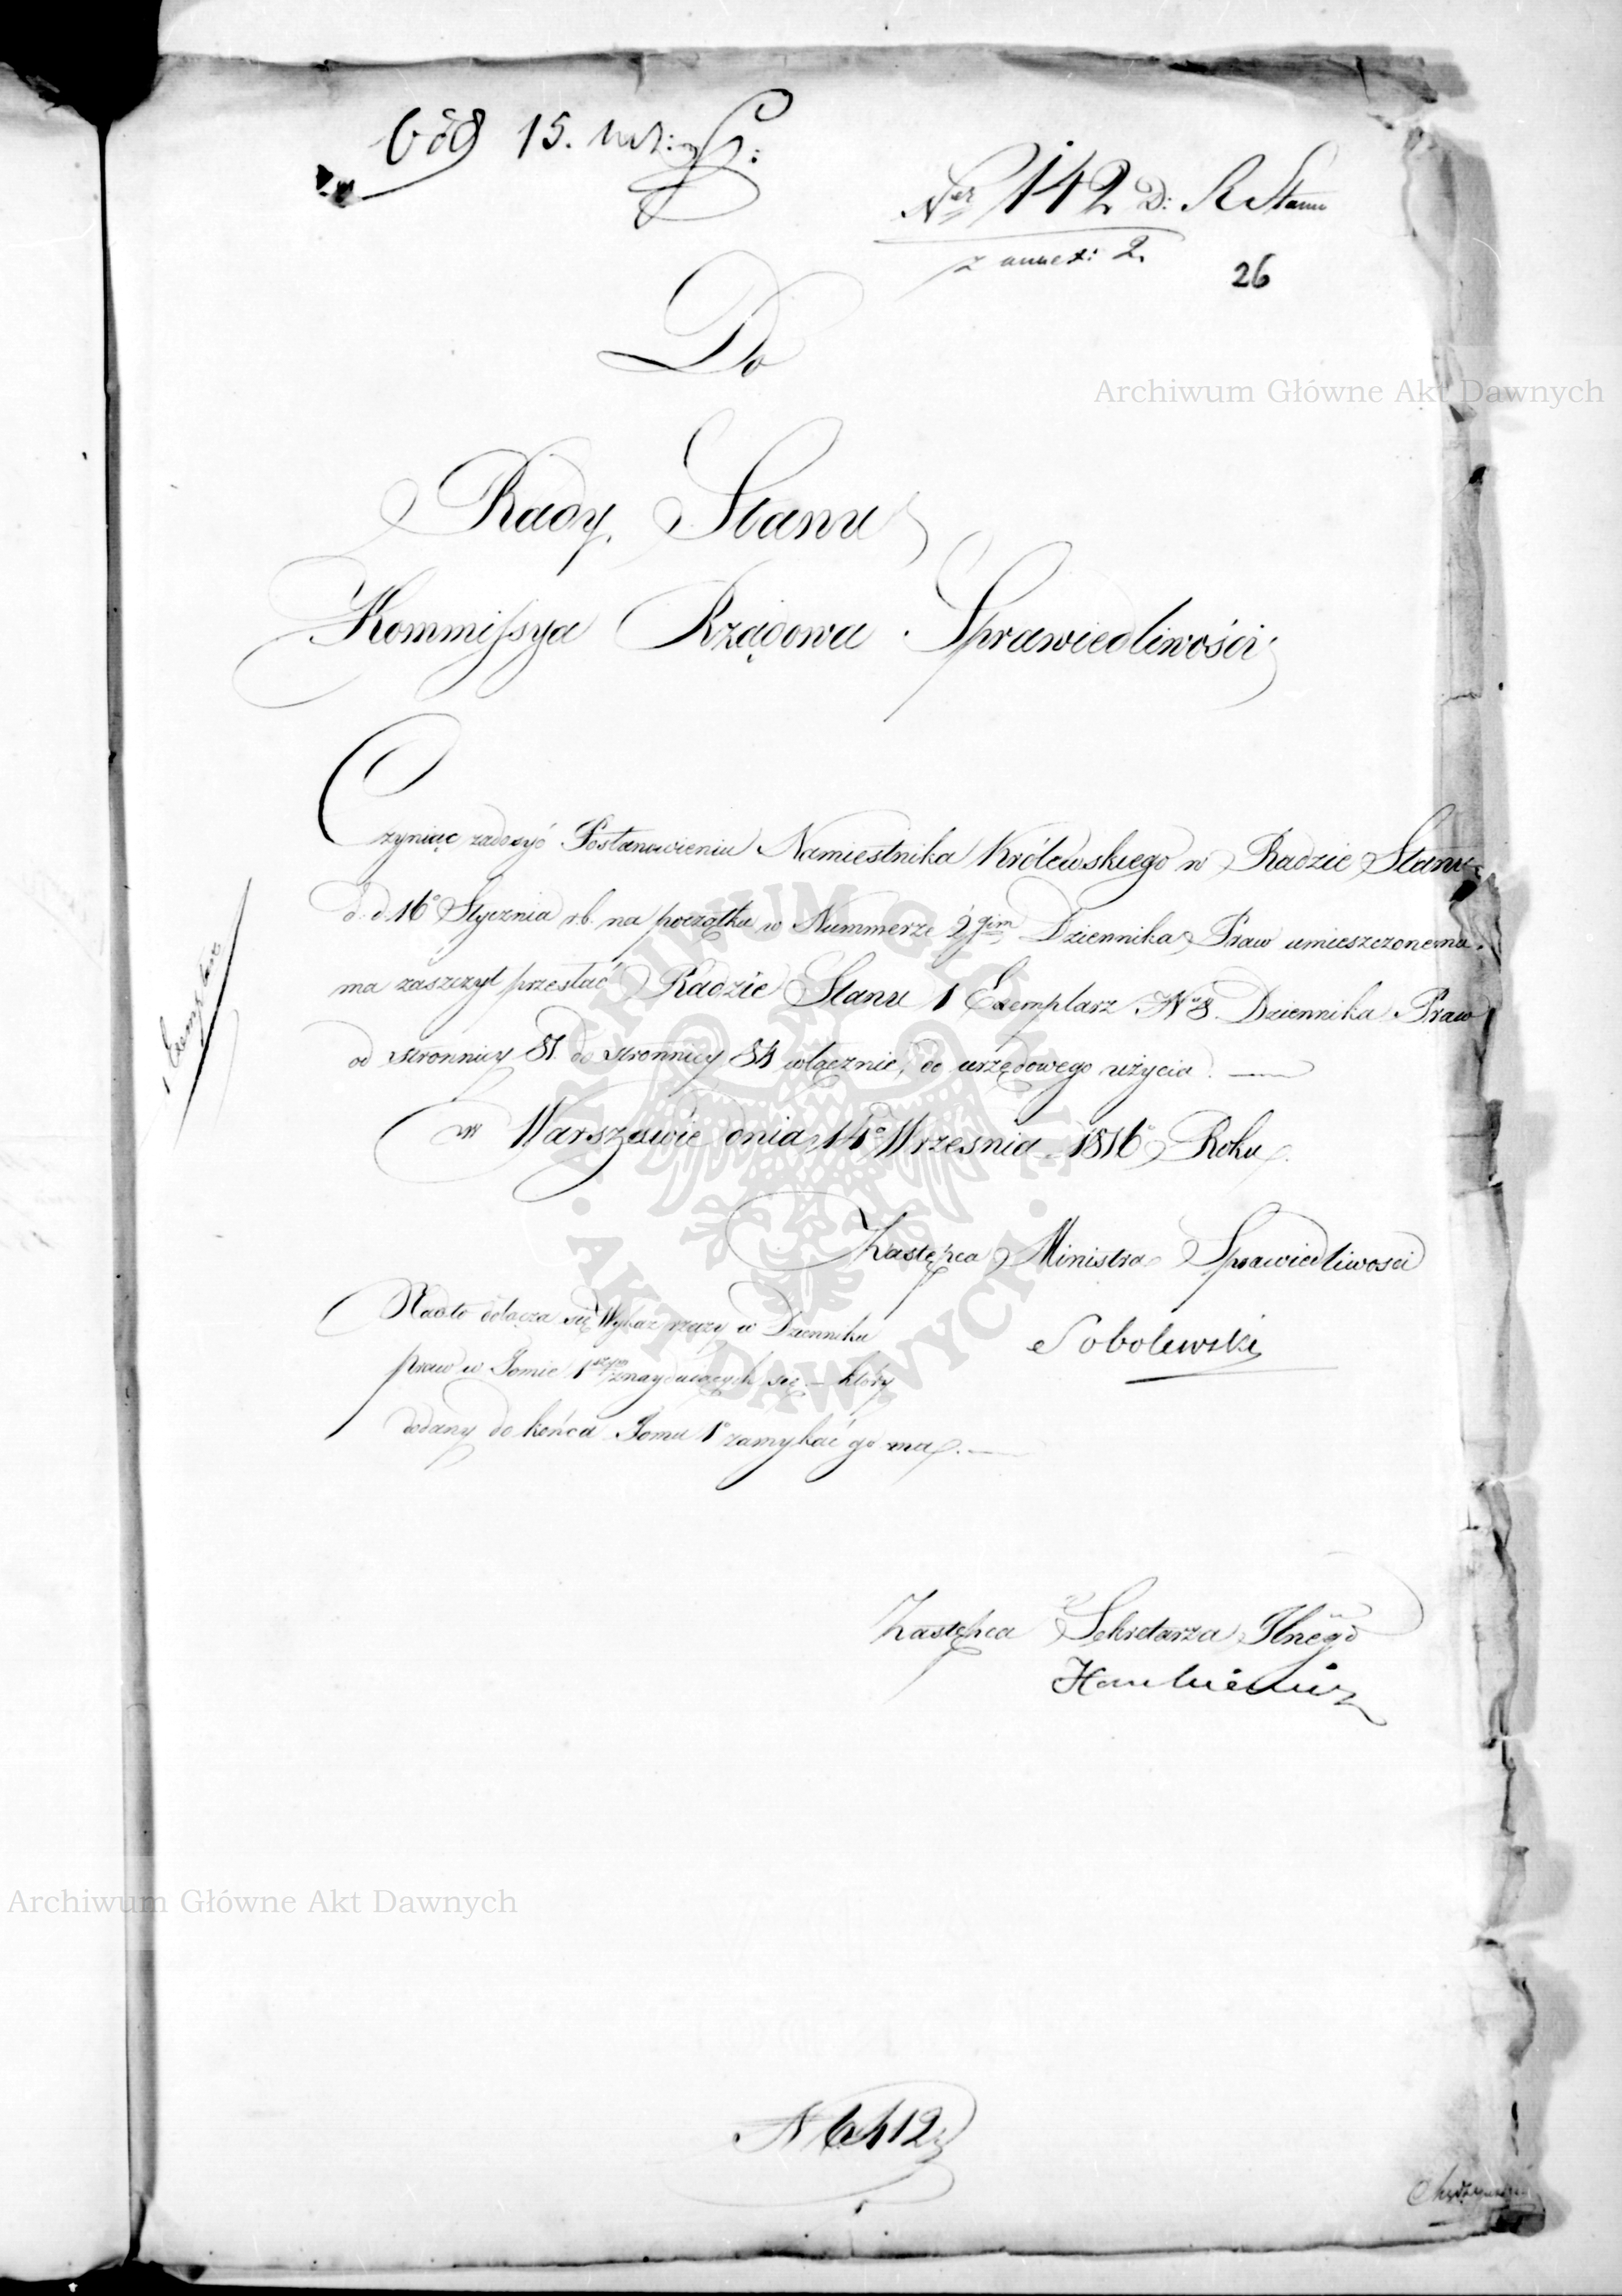 15.
Ner 142 D: R Stanu
z annex: 2.
26
Do
Rady Stanu
Kommissya Rządowa Sprawiedliwości
Archiwum Główne Akt Dawnych
Czyniąc zadosyć Postanowieniu Namiestnika Królewskiego w Radzie Stanu
d. d. 16° Stycznia r.b. na początku w Nummerze 2gim Dziennika Praw umieszczonemu,
ma zaszczyt przesłać Radzie Stanu 1 Exemplarz Nr 8 Dziennika Praw
od stronnicy 81 do stronnicy 84 włącznie, do urzędowego użycia.
w Warszawie dnia 14° Wrzesnia 1816° Roku.
Zastępca Ministra Sprawiedliwosci
Sobolewski
Nadto dołącza się Wykaz rzeczy w Dzienniku
praw w Tomie 1szym znayduiących się - który
dodany do końca Tomu 1° zamykać go ma.
ARCHIWUM GŁÓWNE AKT DAWNYCH
Zastępca Sekretarza Jlnego
Hankiewicz
Archiwum Główne Akt Dawnych
N 6412